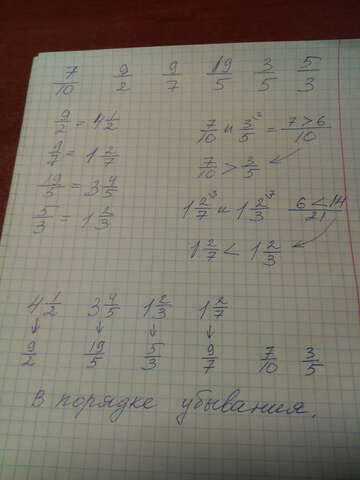 7/10 9/2 9/7 19/5 3/5 5/3
9/2 = 4 1/2
9/7 = 1 2/7
19/5 = 3 4/5
5/3 = 1 2/3
7/10 и 3/5 = 7>6/10
7/10 > 3/5
1 2/7 и 1 2/3 6<14/21
1 2/7 < 1 2/3
4 1/2 3 4/5 1 2/3 1 2/7
↓ ↓ ↓ ↓
9/2 19/5 5/3 9/7 7/10 3/5
В порядке убывания.